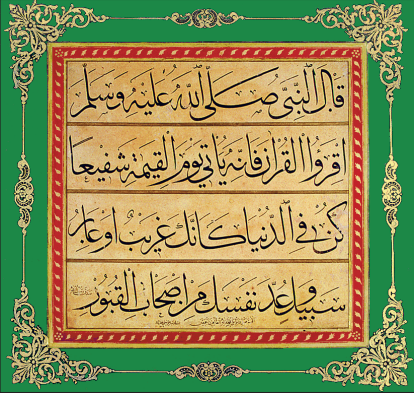 قال النبي صلى الله عليه وسلم
اقرؤا القرآن فانه يأتي يوم القيمة شفيعا
كن في الدنيا كانك غريب او عابر
سبيل وعد نفسك من اصحاب القبور